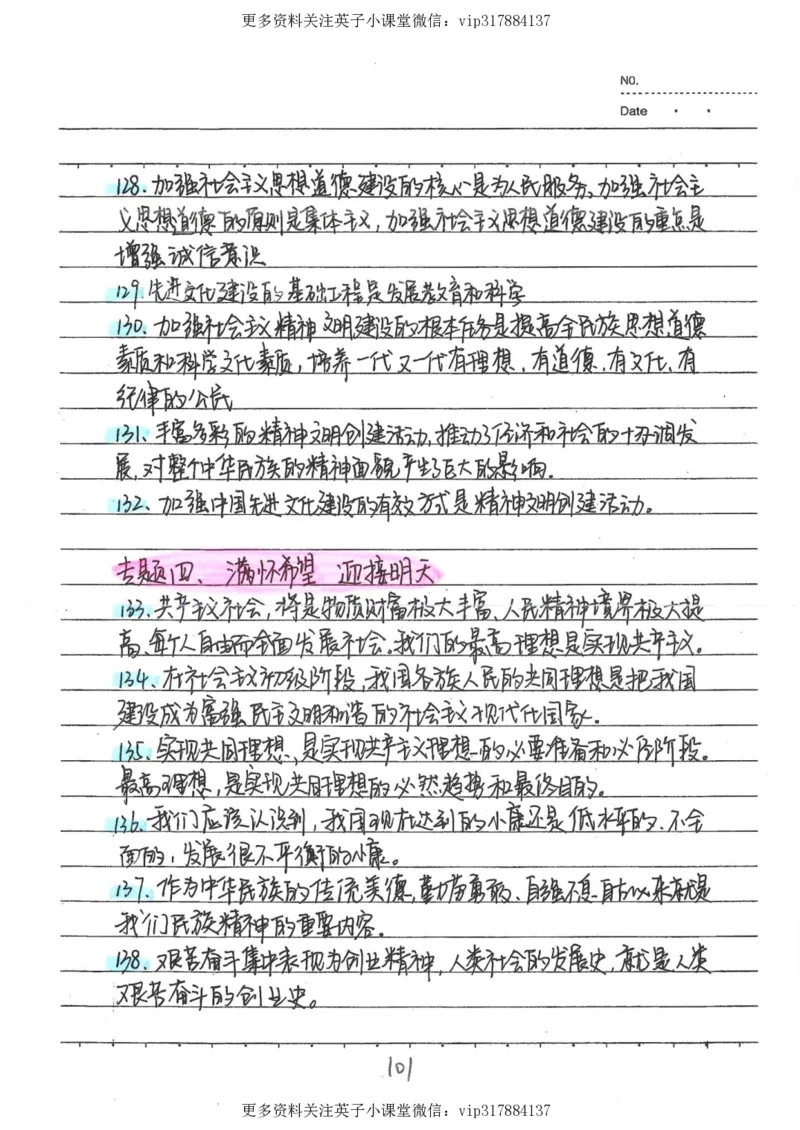 更多资料关注英子小课堂微信：vip317884137
NO.
Date
128、加强社会主义思想道德建设的核心是为人民服务、加强社会主
义思想道德的原则是集体主义,加强社会主义思想道德建设的重点是
增强诚信意识
129、先进文化建设的基础工程是发展教育和科学
130、加强社会主义精神文明建设的根本任务是提高全民族思想道德
素质和科学文化素质，培养一代又一代有理想、有道德、有文化、有
纪律的公民
131、丰富多彩的精神文明创建活动,推动了经济和社会的协调发
展,对整个中华民族的精神面貌产生了巨大的影响.
132、加强中国先进文化建设的有效方式是精神文明创建活动。
专题四、满怀希望 迎接明天
133、共产主义社会，将是物质财富极大丰富、人民精神境界极大提
高、每个人自由而全面发展社会。我们的最高理想是实现共产主义。
134、在社会主义初级阶段，我国各族人民的共同理想是把我国
建设成为富强民主文明和谐的社会主义现代化国家。
135、实现共同理想，是实现共产主义理想的必要准备和必经阶段。
最高理想，是实现共同理想的必然趋势和最终目的。
136、我们应该认识到，我国现在达到的小康还是低水平的、不全
面的，发展很不平衡的小康。
137、作为中华民族的传统美德,勤劳勇敢、自强不息自古以来就是
我们民族精神的重要内容。
138、艰苦奋斗集中表现为创业精神，人类社会的发展史,就是人类
艰苦奋斗的创业史。
101
更多资料关注英子小课堂微信：vip317884137